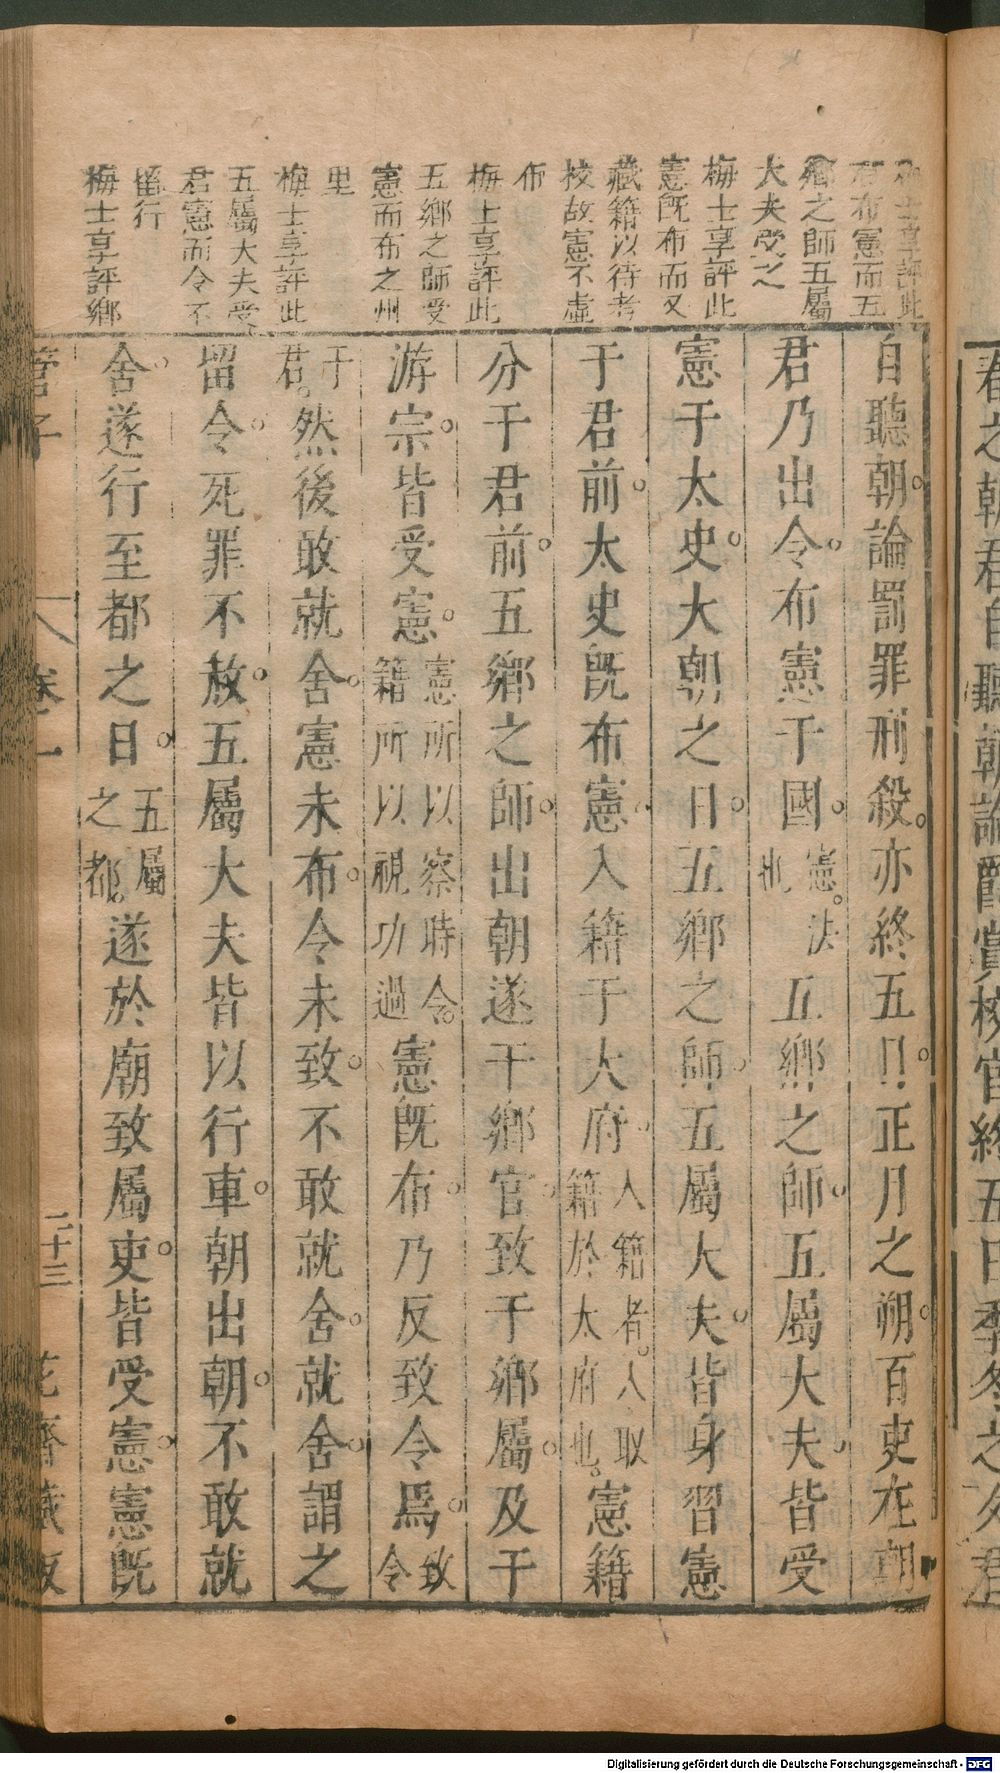 春之朝君自聽朝論爵賞校官終五日季冬之夕君
梅士享評此
言布憲而五
鄉之師五屬
大夫受之
梅士享評此
憲既布而又
藏籍以待考
校故憲不虛
布
梅士享評此
五鄉之師受
憲而布之州
里
梅士享評此
五屬大夫受
君憲而令不
畱行
梅士享評鄉
自聽朝論罰罪刑殺亦終五日正月之朔百吏在朝
君乃出令布憲于國憲法也五鄉之師五屬大夫皆受
憲于太史大朝之日五鄉之師五屬大夫皆身習憲
于君前太史既布憲入籍于大府入籍者入取籍於太府也憲籍
分于君前五鄉之師出朝遂于鄉官致于鄉屬及于
游宗皆受憲憲所以察時令籍所以視功過憲既布乃反致令焉致令
于君然後敢就舍憲未布令未致不敢就舍就舍謂之
留令死罪不赦五屬大夫皆以行車朝出朝不敢就
舍遂行至都之日五屬之都遂於廟致屬吏皆受憲憲既
管子 卷一 二十三 花齋藏板
Digitalisierung gefördert durch die Deutsche Forschungsgemeinschaft - DFG